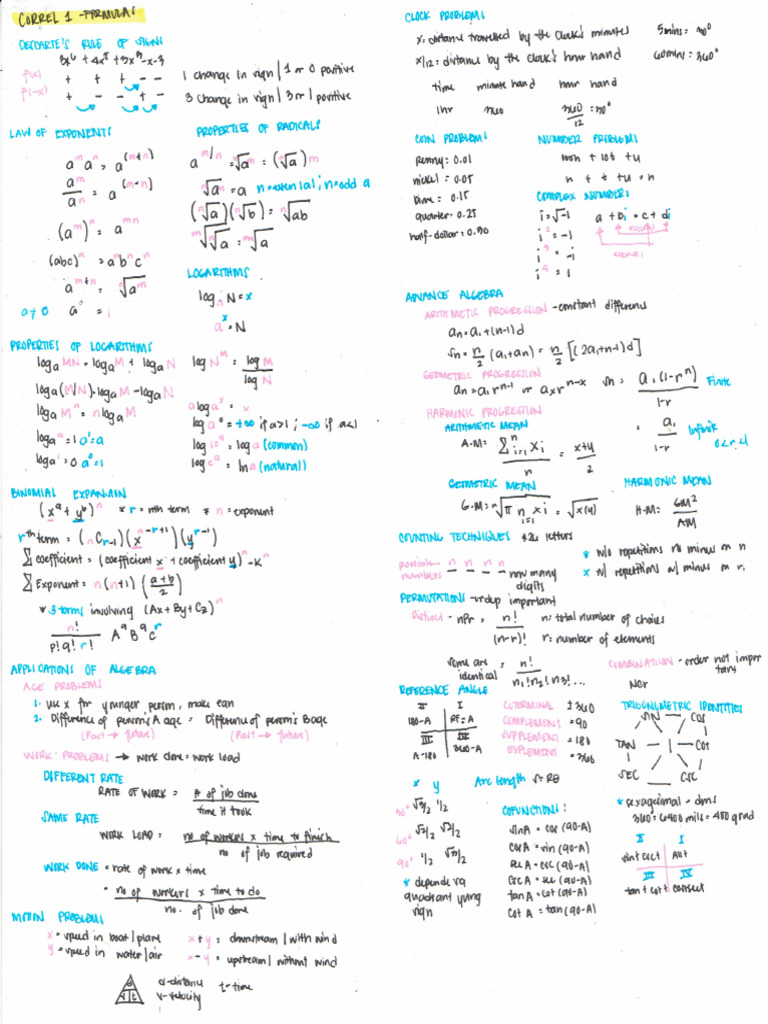 CORREL 1 - FORMULAS
DESCARTE'S RULE OF SIGNS
3x⁶ + 4x⁵ + 3x³ - x - 3
f(x) + + + - -
f(-x) + - - + -
1 change in sign | 1 or 0 positive
3 change in sign | 3 or 1 positive
LAW OF EXPONENTS
aᵐ aⁿ = a^(m+n)
aᵐ/aⁿ = a^(m-n)
(aᵐ)ⁿ = aᵐⁿ
(abc)ⁿ = aⁿbⁿcⁿ
a^(m÷n) = ⁿ√aᵐ
a≠0 a⁰ = 1
PROPERTIES OF RADICALS
a^(m/n) = ⁿ√aᵐ = (ⁿ√a)m
ⁿ√aⁿ = a n=even |a| ; n=odd a
(ⁿ√a)(ⁿ√b) = ⁿ√ab
ᵐ√ⁿ√a = ᵐⁿ√a
LOGARITHMS
logₐ N = x
aˣ = N
PROPERTIES OF LOGARITHMS
logₐ MN = logₐ M + logₐ N
logₐ (M/N) = logₐ M - logₐ N
logₐ Mⁿ = n logₐ M
logₐ a = 1 a¹=a
logₐ 1 = 0 a⁰=1
log Nᴹ = log M / log N
a logₐˣ = x
logₐ 0 = +∞ if a>1 ; -∞ if a<1
log 10ᵃ = log a (common)
log eᵃ = ln a (natural)
BINOMIAL EXPANSION
(xᵃ + yᵇ)ⁿ * r = nth term * n = exponent
rᵗʰ term = (nCr-1)(x^(n-r+1))(y^(r-1))
Σ coefficient = (coefficient x + coefficient y)ⁿ - Kⁿ
Σ Exponent = n(n+1) (a+b/2)
* 3-terms involving (Ax+By+Cz)ⁿ
n! / p!q!r! Aᵖ B^q Cʳ
APPLICATIONS OF ALGEBRA
AGE PROBLEMS
1. use x for younger person, make eqn
2. Difference of person's A age = Difference of person's B age
(Past → future) (Past → future)
WORK PROBLEMS → work done = work load
DIFFERENT RATE
RATE OF WORK = # of job done / time it took
SAME RATE
WORK LOAD = no of workers x time to finish / no of job required
WORK DONE = rate of work x time
= no of workers x time to do / no. of job done
MOTION PROBLEMS
x = speed in boat/plane x + y = downstream | with wind
y = speed in water/air x - y = upstream | without wind
d
v t
d-distance t-time
v-velocity
CLOCK PROBLEMS
x: distance travelled by the clock's minutes 5mins = 30°
x/12 = distance by the clock's hour hand 60mins = 360°
time minute hand hour hand
1hr 360 360/12 = 30°
COIN PROBLEMS
Penny = 0.01
nickel = 0.05
Dime = 0.15
quarter = 0.25
half-dollar = 0.50
NUMBER PROBLEMS
100h + 10t + u
h + t + u = n
COMPLEX NUMBERS
i = √-1 a + bi = c + di
i² = -1 equal
i³ = -i equal
i⁴ = 1
ADVANCE ALGEBRA
ARITHMETIC PROGRESSION - constant difference
an = a₁ + (n-1)d
Sn = n/2 (a₁ + an) = n/2 [(2a₁ + n-1)d]
GEOMETRIC PROGRESSION
an = a₁rⁿ⁻¹ or axrⁿ⁻ˣ Sn = a₁(1-rⁿ) / 1-r Finite
= a₁ / 1-r Infinite 0<r<1
HARMONIC PROGRESSION
ARITHMETIC MEAN
A.M = Σⁿᵢ₌₁ Xi / n = x+y / 2
GEOMETRIC MEAN
G.M = ⁿ√π n i=1 xi = √x(y)
HARMONIC MEAN
H.M = GM² / AM
COUNTING TECHNIQUES * 26 letters
possible numbers n n n n how many digits
* w/o repetitions no minus on n
x w/ repetitions w/ minus on n
PERMUTATIONS - order important
Distinct - nPr = n! / (n-r)! n = total number of choices
r = number of elements
some are identical = n! / n₁! n₂! n₃! ...
COMBINATION - order not important
nCr
REFERENCE ANGLE
II I
180-A RF=A
III IV
A-180 360-A
COTERMINAL ± 360
COMPLEMENT = 90
SUPPLEMENT = 180
EXPLEMENT = 360
TRIGONOMETRIC IDENTITIES
SIN COS
TAN 1 COT
SEC CSC
x y Arc length S=Rθ
30° √3/2 1/2
60° √2/2 √2/2
90° 1/2 √3/2
* depende sa
quadrant yung
sign
COFUNCTIONS:
sin A = cos (90-A)
cos A = sin (90-A)
sec A = csc (90-A)
csc A = sec (90-A)
tan A = cot (90-A)
cot A = tan (90-A)
* sexagesimal = dms
360 = 6400 mils = 400 grad
II I
sin + csc t All
III IV
tan + cot t cos + sec t